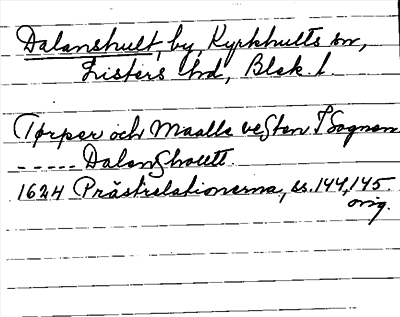 Dalanshult, by, Kyrkhults sn,
Listers hd, Blek. l.
Tørper och Maalle vesten I Sognen
----- Dalenshoutt.
1624 Prästrelationerna, ss. 144, 145.
orig.